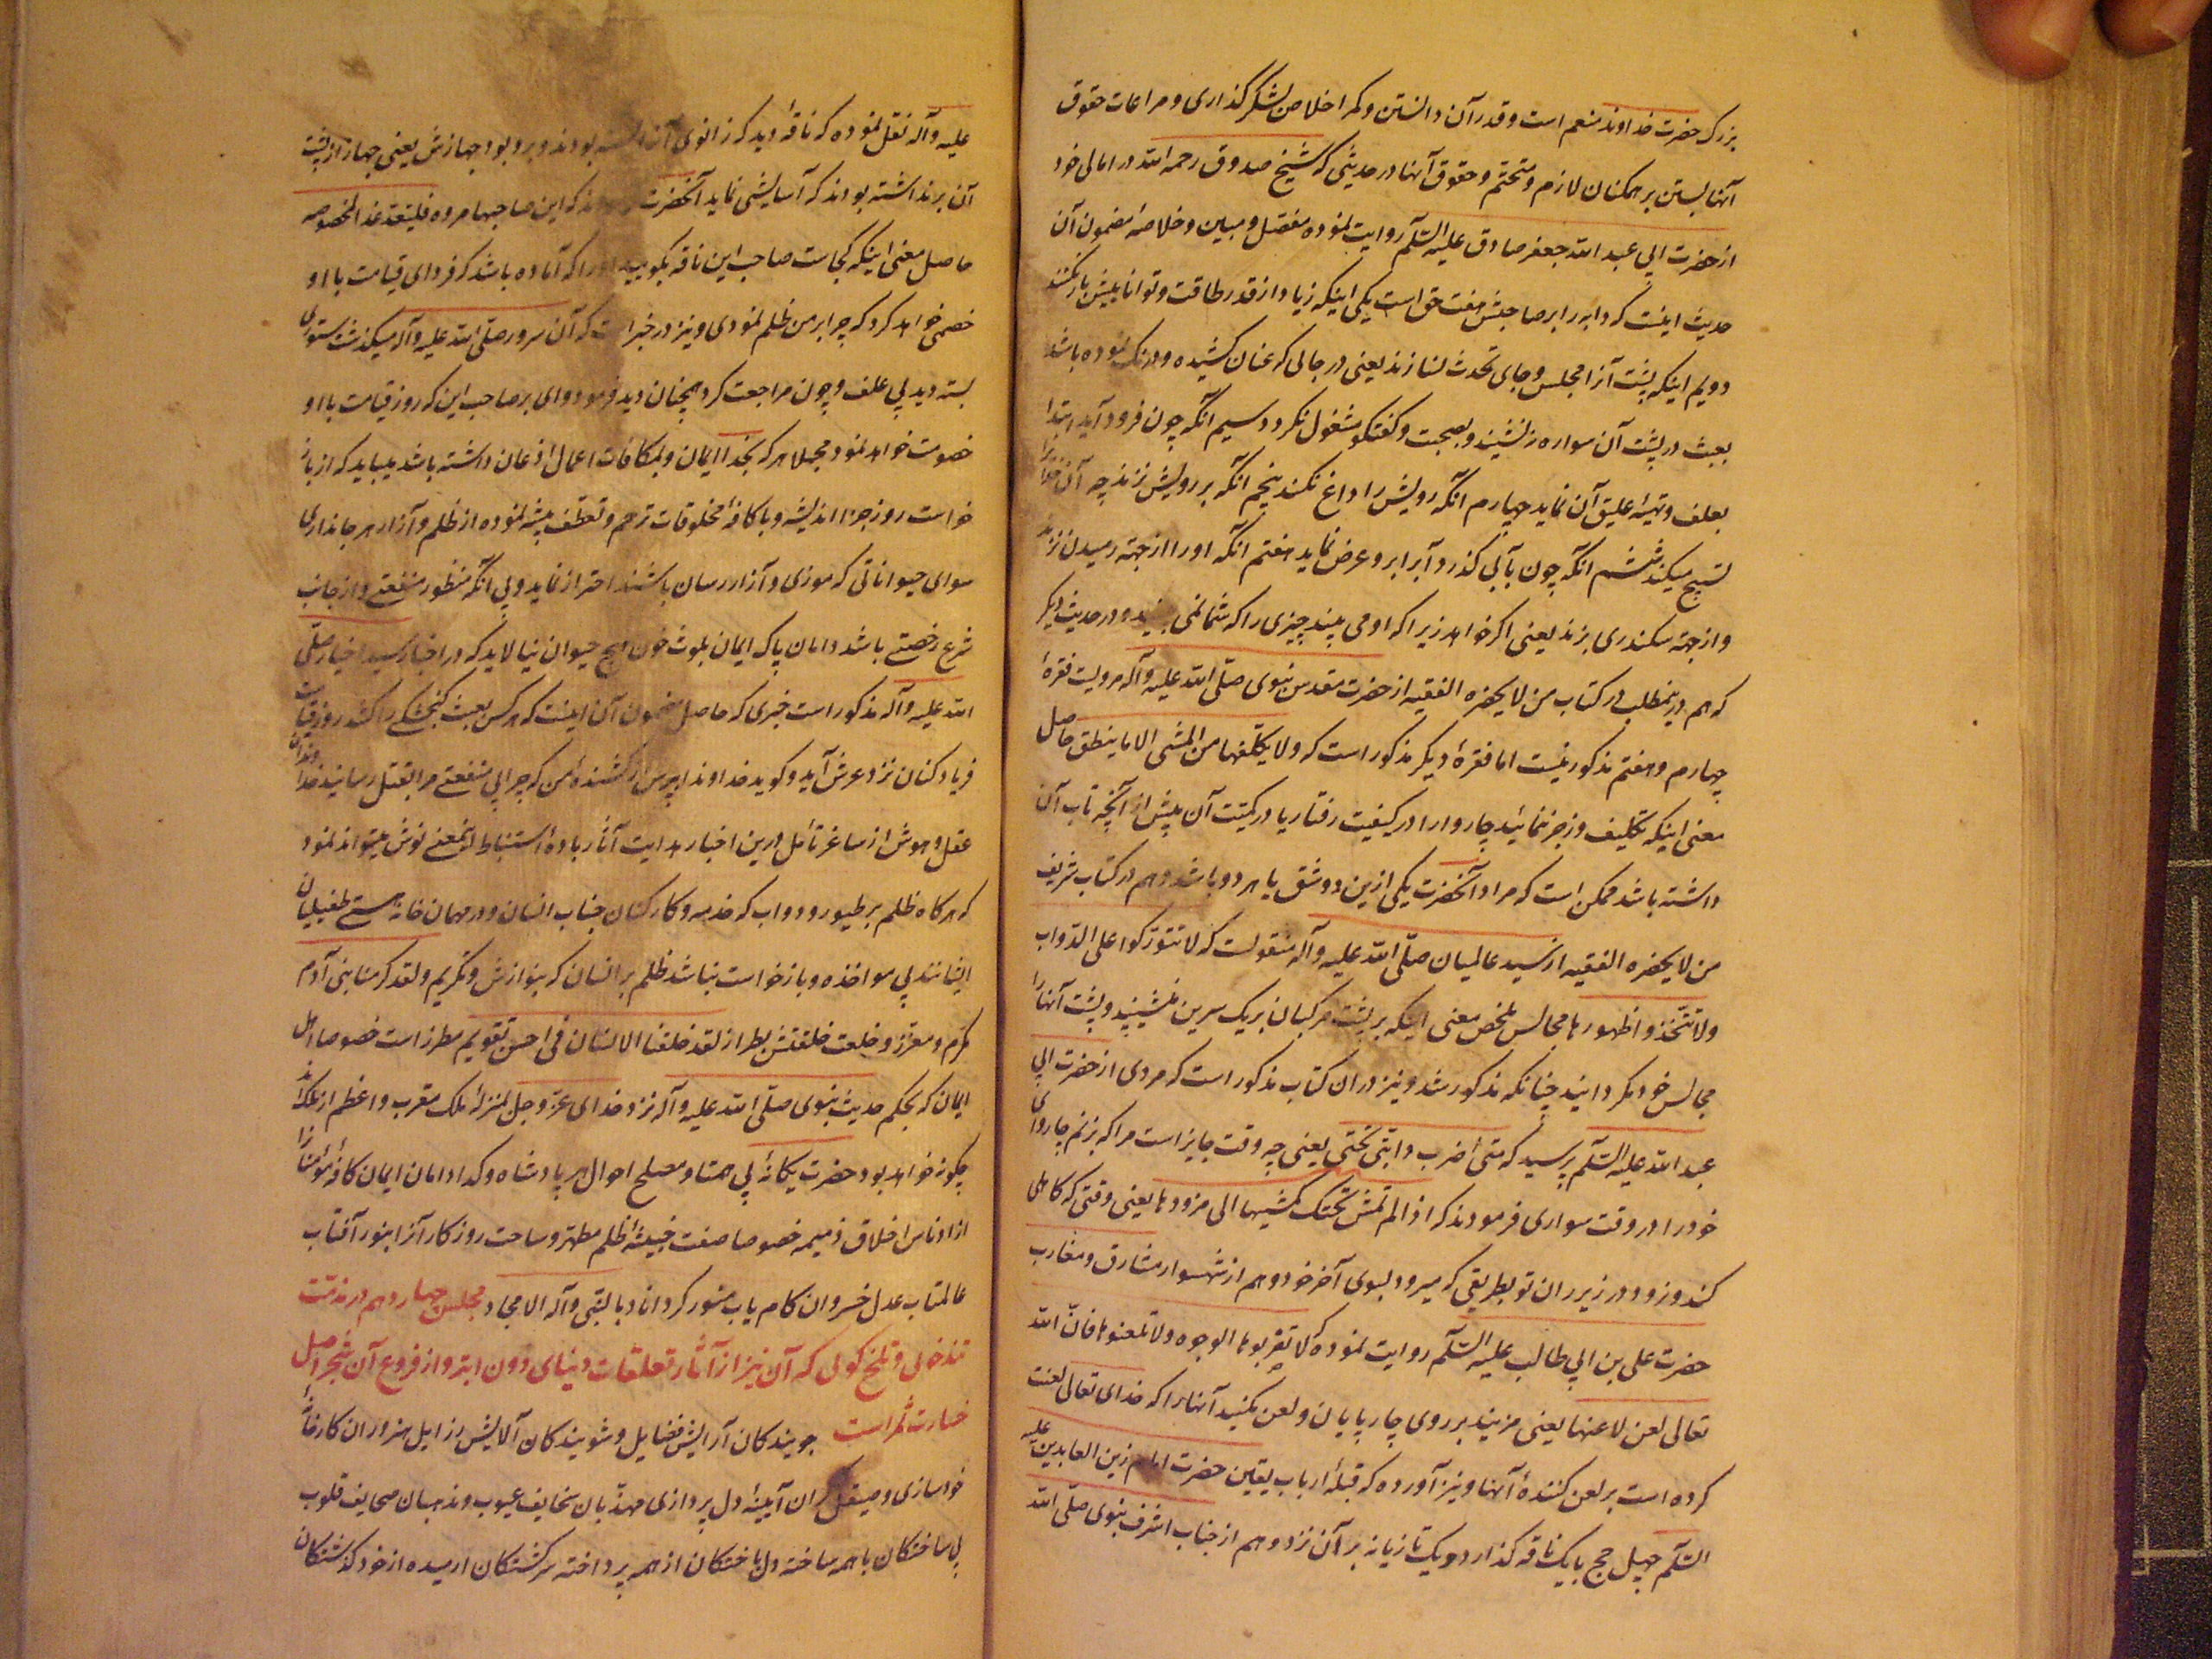 بزرک حضرت خداوند منعم است وقدر آن دانستن وکمر اخلاص بشکر گذاری و مراعات حقوق
آنها بستن بر همکنان لازم ومتحتم و حقوق آنها در حدیثی که شیخ صدوق رحمه الله در امالی خود
از حضرت ابی عبد الله جعفر صادق علیه السّلم روایت نموده مفصّل و مبین وخلاصهٔ مضمون آن
حدیث اینست که دابه را بر صاحبش هفت حق است یکی اینکه زیاد از قدر طاقت وتواناییش بار نکنند
دویم اینکه پشت آنرا مجلس وجای تحدث نسازند یعنی در حالی که عنان کشیده و درنک نموده باشد
بعبث در پشت آن سواره ننشیند و بصحبت و کفتکو مشغول نکردد سیم آنکه چون فرود آید ابتدا
بعلف وتهیهٔ علیق آن نماید چهارم آنکه رویش را داغ نکند پنجم آنکه بر رویش نزند چه آن خدا را
تسبیح میکند ششم آنکه چون بآبی کذرد آب را برو عرض نماید هفتم آنکه او را از جهة رمیدن نزند
و از جهة سکندری بزند یعنی اگر خواهد زیرا که او می بیند چیزی را که شما نمی بینید و در حدیث دیکر
که هم درینمطلب در کتاب من لا یحضره الفقیه از حضرت مقدس نبوی صلّی الله علیه وآله مرویست فقرهٔ
چهارم وهفتم مذکور نیست اما فقرهٔ دیکر مذکور است که ولا یکلّفها من المشی الا ما ینطق حاصل
معنی اینکه تکلیف وزجر ننمائید چاروا را در کیفیت رفتار یا در کمیّت آن پیش از آنچه تاب آن
داشته باشد ممکن است که مراد آنحضرت یکی ازین دو شق یا هر دو باشد وهم در کتاب شریف
من لا یحضره الفقیه از سید عالمیان صلّی الله علیه وآله منقولست که لا تتورّکوا علی الدّواب
ولا تتّخذوا ظهورها مجالس ملخص معنی اینکه بر پشت مرکبان بر یک سرین ننشینید و پشت آنها را
مجالس خود مکردانید چنانکه مذکور شد ونیز در ان کتاب مذکور است که مردی از حضرت ابی
عبد الله علیه السّلم پرسید که متی أضرب دابّتی تحتی یعنی چه وقت جایز است مرا که بزنم چاروای
خود را در وقت سواری فرمودند که اذا لم تمش تحتک کمشیها الی مزودها یعنی وقتی که کاهلی
کند و نرود در زیر ران تو بطریقی که میرود بسوی آخر خود وهم از شهسوار مشارق ومغارب
حضرت علی بن ابی طالب علیه السّلم روایت نموده که لا تضربوها الوجوه ولا تلعنوها فانّ الله
تعالی لعن لاعنها یعنی مزنید بر روی چارپایان و لعن مکنید آنها را که خدای تعالی لعنت
کرده است بر لعن کنندهٔ آنها ونیز آورده که قبلهٔ ارباب یقین حضرت امام زین العابدین علیه
السّلم چهل حج با یک ناقه کذارد و یک تازیانه بر آن نزد و هم از جناب اشرف نبوی صلّی الله
علیه وآله نقل نموده که ناقهٔ دید که زانوی آن را بسته بودند و برو بود جهازش یعنی جهاز از پشت
آن برنداشته بودند که آسایشی نماید آنحضرت فرمودند که این صاحبها مروه فلیستعد غدا للخصومه
حاصل معنی اینکه کجاست صاحب این ناقه بکویید او را که آماده باشد که فردای قیامت با او
خصمی خواهد کرد که چرا بر من ظلم نمودی ونیز در خبر است که آن سرور صلّی الله علیه وآله میکذشت ستوری
بسته دید بی علف وچون مراجعت کرد همچنان دید فرمود وای بر صاحب این که روز قیامت با او
خصومت خواهد نمود مجملا هر که بخدا ایمان وبمکافات اعمال اذعان داشته باشد میباید که از باز
خواست روز جزا اندیشه وبا کافهٔ مخلوقات ترحم وتعطف پیشه نموده از ظلم وآزار هر جانداری
سوای حیواناتی که موذی وآزار رسان باشند احتراز نماید وبی آنکه منظور منفعتی واز جانب
شرع رخصتی باشد دامان پاک ایمان بلوث خون هیچ حیوان نیالاید که در اخبار سید اخیار صلّی
الله علیه وآله مذکور است خبری که حاصل مضمون آن اینست که هر کس بعبث کنجشکی را کشد روز قیامت
فریاد کنان نزد عرش آید وکوید خداوندا بپرس از کشندهٔ من که چرا بی منفعتی مرا بقتل رسانید خداوندان
عقل وهوش از ساغر تامّل درین اخبار هدایت آثار بادهٔ استنباط اینمعنی نوش میتوانند نمود
که هرکاه ظلم بر طیور ودواب که خدمه وکارکنان جناب انسان ودر مهمان خانهٔ هستی طفیلیان
ایشانند بی مواخذه وبازخواست نباشد ظلم بر انسان که بنوازش وتکریم ولقد کرّمنا بنی آدم
مکرّم ومعزّز وخلعت خلقتش بطراز لقد خلقنا الانسان فی احسن تقویم مطرز است خصوصا اهل
ایمان که بحکم حدیث نبوی صلّی الله علیه وآله نزد خدای عزّ وجل بمنزلهٔ ملک مقرب و اعظم از ملک اند
چکونه خواهد بود حضرت یکانهٔ بی همتا ومصلح احوال هر پادشاه وکدا دامان ایمان کافهٔ مؤمنان را
از ادناس اخلاق ذمیمه خصوصا صفت خبیثهٔ ظلم مطهّر وساحت روزکار آنرا بنور آفتاب
عالمتاب عدل خسروان کام یاب منوّر کرداناد بالنّبی وآله الامجاد مجلس چهاردهم در مذمّت
تندخوئی وتلخ کوئی که آن نیز از آثار تعلقات دنیای دون ابتر واز فروع آن شجر اصل
خسارت ثمر است جویندکان آرایش فضایل وشویندکان آلایش رذایل هنروران کارخانهٔ
خودسازی وصیقل کران آیینهٔ دل پردازی مهذّبان سخایف عیوب ومذهبان صحایف قلوب
بی ساختکان با همه ساخته دل باختکان از همه پرداخته سرکشتکان ارمیده از خود کذشتکان